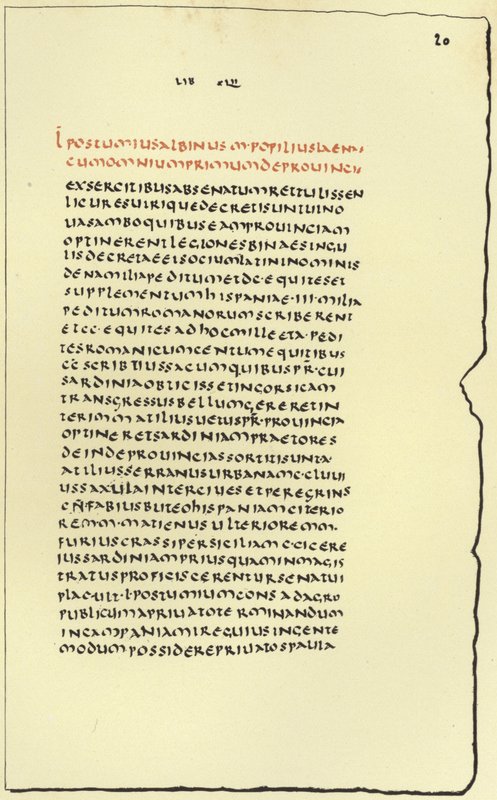 20
LIB XLII
L̄ POSTUMIUSALBINUS M·POPILIUSLAENAS
CUMOMNIUMPRIMUMDEPROUINCIIS
EXSERCITIBUSABSENATUMRETTULISSEN
LICURESUTRIQUEDECRETISUNTUTNO
UASAMBOQUIBUSEAMPROUINCIAM
OPTINERENTLEGIONESBINAESINGU
LISDECRETAEETSOCIUMLATININOMINIS
DENAMILIAPEDITUMETDC·EQUITESET
SUPPLEMENTUMHISPANIAE·III·MILIA
PEDITUMROMANORUMSCRIBERENT
ETCC·EQUITESADHOCMILLEETA·PEDI
TESROMANICUMCENTUMEQUITIBUS
CC̄SCRIBTIUSSACUMQUIBUSPR̄·CUI
SARDINIAOBTICISSETINCORSICAM
TRANSGRESSUSBELLUMGERERETIN
TERIMMATILIUSUETUSPR̄·PROUINCIA
OPTINERETSARDINIAMPRAETORES
DEINDEPROUINCIASSORTITISUNTA·
ATILIUSSERRANUSURBANAMC·CLUUI
USSAXULAINTERCIUESETPEREGRINS
CN̄FABIUSBUTEOHISPANIAMCITERIO
REMM·MATIENUSULTERIOREMM·
FURIUSCRASSIPERSICILIAMC·CICERE
IUSSARDINIAMPRIUSQUAMINMAGIS
TRATUSPROFICISCERENTURSENATUI
PLAC·ULT·L·POSTUMIUMCONSADAGRU
PUBLICUMAPRIUATOTERMINANDUM
INCAMPANIAMIRECUIUSINGENTE
MODUMPOSSIDEREPRIUATOSPAULA